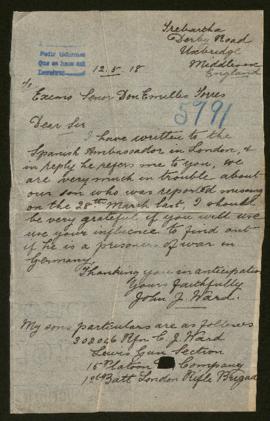 Trebartha
Derby Road
Uxbridge
Middlesex
England
Pedir informes
12.5.18
5791
Excmo Senor Don Emilles Torres
Dear Sir
I have written to the
Spanish Ambassador in London, &
in reply he refers me to you, we
are very much in trouble about
our son who was reported missing
on the 28th March last. I should
be very grateful if you will use
use your influence to find out
if he is a prisoner of war in
Germany.
Thanking you in anticipation
Yours faithfully
John J. Ward.
My sons particulars are as follows
302046 Rfn C. J Ward
Lewis Gun Section
15 Platoon Company
1st Batt London Rifle Brigad